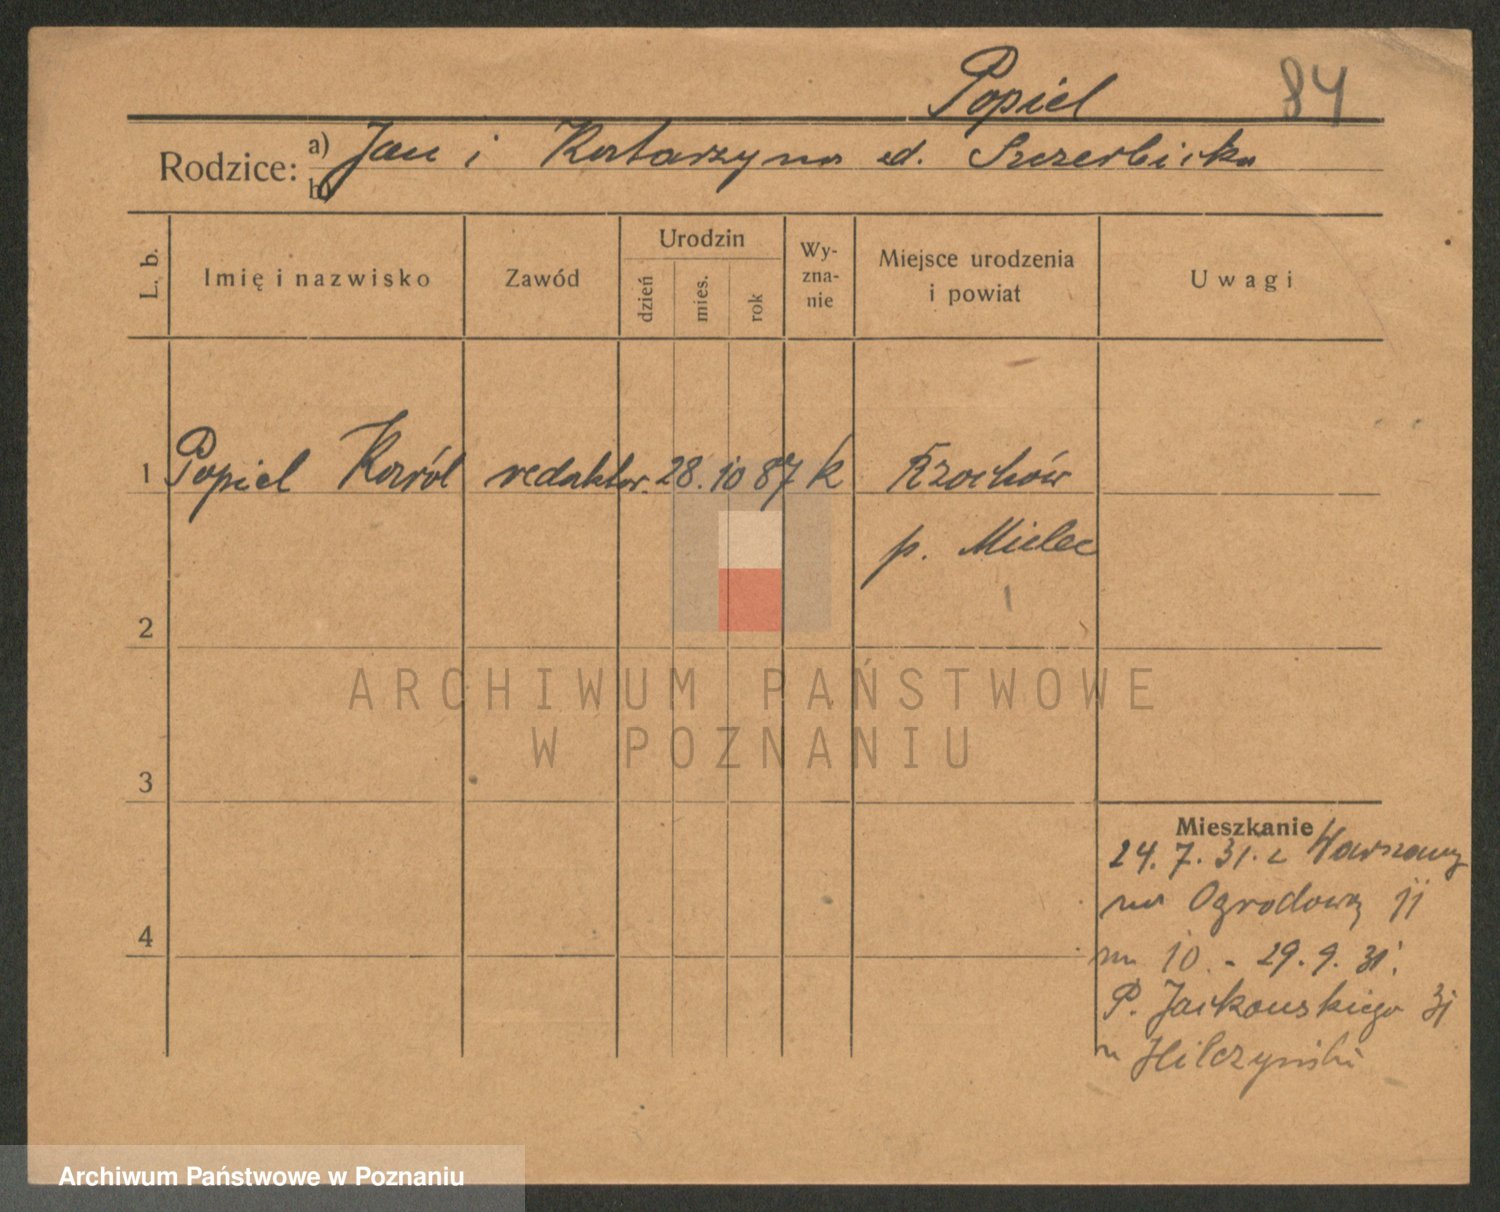 Popiel 84
Rodzice: a) Jan i Katarzyna Szczerbicka
b)
L. b.
Imię i nazwisko
Zawód
Urodzin
dzień
mies.
rok
Wy-
zna-
nie
Miejsce urodzenia
i powiat
Uwagi
1 Popiel Karól redaktor. 28. 10 87 k Rzochów
p. Mielec
2
3
4
ARCHIWUM PAŃSTWOWE
W POZNANIU
Mieszkanie
24. 7. 31. z Warszawy
na Ogrodową 11
10. - 29. 9. 31.
P. Jackowskiego 31
Archiwum Państwowe w Poznaniu